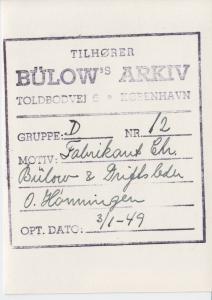 TILHØRER
BÜLOW'S ARKIV
TOLDBODVEJ 6 • KØBENHAVN
GRUPPE: D NR. 12
MOTIV: Fabrikant Chr.
Bülow & Driftsleder
O. Hönningen
OPT. DATO: 3/1-49